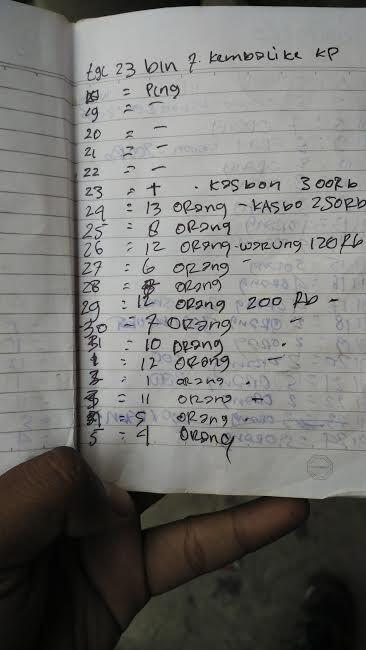 tgl 23 bln 7. kembalike KP
= Ping
19 = -
20 = -
21 = -
22 = -
23 = + . Kasbon 300Rb
24 = 13 orang - Kasbo 250Rb
25 = 8 orang
26 = 12 orang - warung 120Rb
27 = 6 orang -
28 = 8 orang
29 = 12 orang 200 Rb -
30 = 7 orang -
31 = 10 orang .
1 = 12 orang -
= 1 orang .
= 11 orang -
= 5 orang .
5 = 4 orang